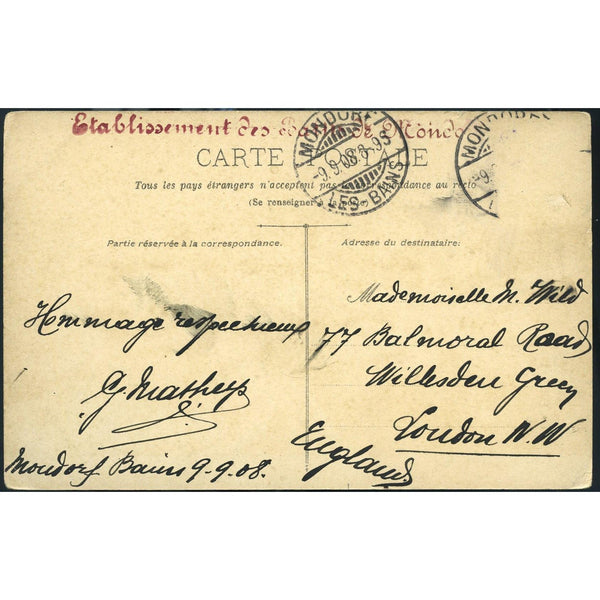 Etablissement des Bains de Mondo
CARTE POSTALE
MONDORF
9.9.08.8-9S
LES-BAINS
MONDORF
9.
Tous les pays étrangers n'acceptent pas la correspondance au recto
(Se renseigner à la poste)
Partie réservée à la correspondance.
Adresse du destinataire:
Hommage respectueux
G. Matheys
Mondorf Bains 9-9.08.
Mademoiselle M. Wild
77 Balmoral Road
Willesden Green
London N.W
England